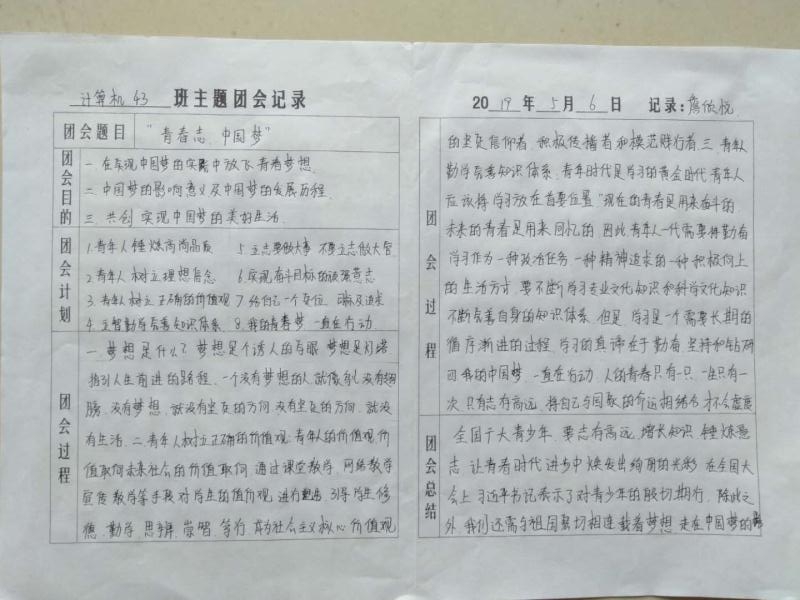 计算机43 班主题团会记录
团会题目 "青春志、中国梦"
团会目的
一.在实现中国梦的实践中放飞青春梦想.
二.中国梦的影响意义及中国梦的发展历程.
三.共创实现中国梦的美好生活.
团会计划
1.青年人锤炼高尚品质 5.立志要做大事 不要立志做大官
2.青年人树立理想信念 6.实现奋斗目标的顽强意志
3.青年人树立正确的价值观 7.给自己一个定位
4. 勤学完善知识体系 8.我的青春梦 一直在行动
团会过程
一.梦想是什么?梦想是个诱人的 梦想是灯塔
指引人生前进的路程.一个没有梦想的人就像鸟儿没有翅
膀.没有梦想,就没有坚定的方向.没有坚定的方向.就没
有生活.二.青年人树立正确的价值观.青年人的价值观价
值取向未来社会的价值取向.通过课堂教学.网络教学
教学等手段对学生的值价观.进行 引导学生修
德.勤学.思辨.崇智.笃行.有为社会主义核心价值观
2019年5月6日 记录:
团会过程
的坚定信仰者.积极传播者和模范践行者.三.青年人
勤学完善知识体系.青年时代是学习的黄金时代.青年人
应该将学习放在首要位置"现在的青春是用来奋斗的.
未来的青春是用来回忆的.因此青年人一代需要将勤奋
学习作为一种政治任务.一种精神追求的一种积极向上
的生活方式.要不断学习专业文化知识和科学文化知识
不断完善自身的知识体系.但是.学习是一个需要长期的
循序渐进的过程.学习的真谛在于勤奋.坚持和钻研
四.我的中国梦.一直在行动.人的青春只有一只.一生只有一
次.只有志有高远.将自己与国家的命运相结合.才不会虚度
团会总结
全国广大青少年.要志有高远.增长知识.锤炼意
志.让青春时代进步中焕发出绚丽的光彩.在全国大
会上.习近平书记表示了对青少年的殷切期行.除此之
外.我们还需与祖国紧切相连.载着梦想.走在中国梦的